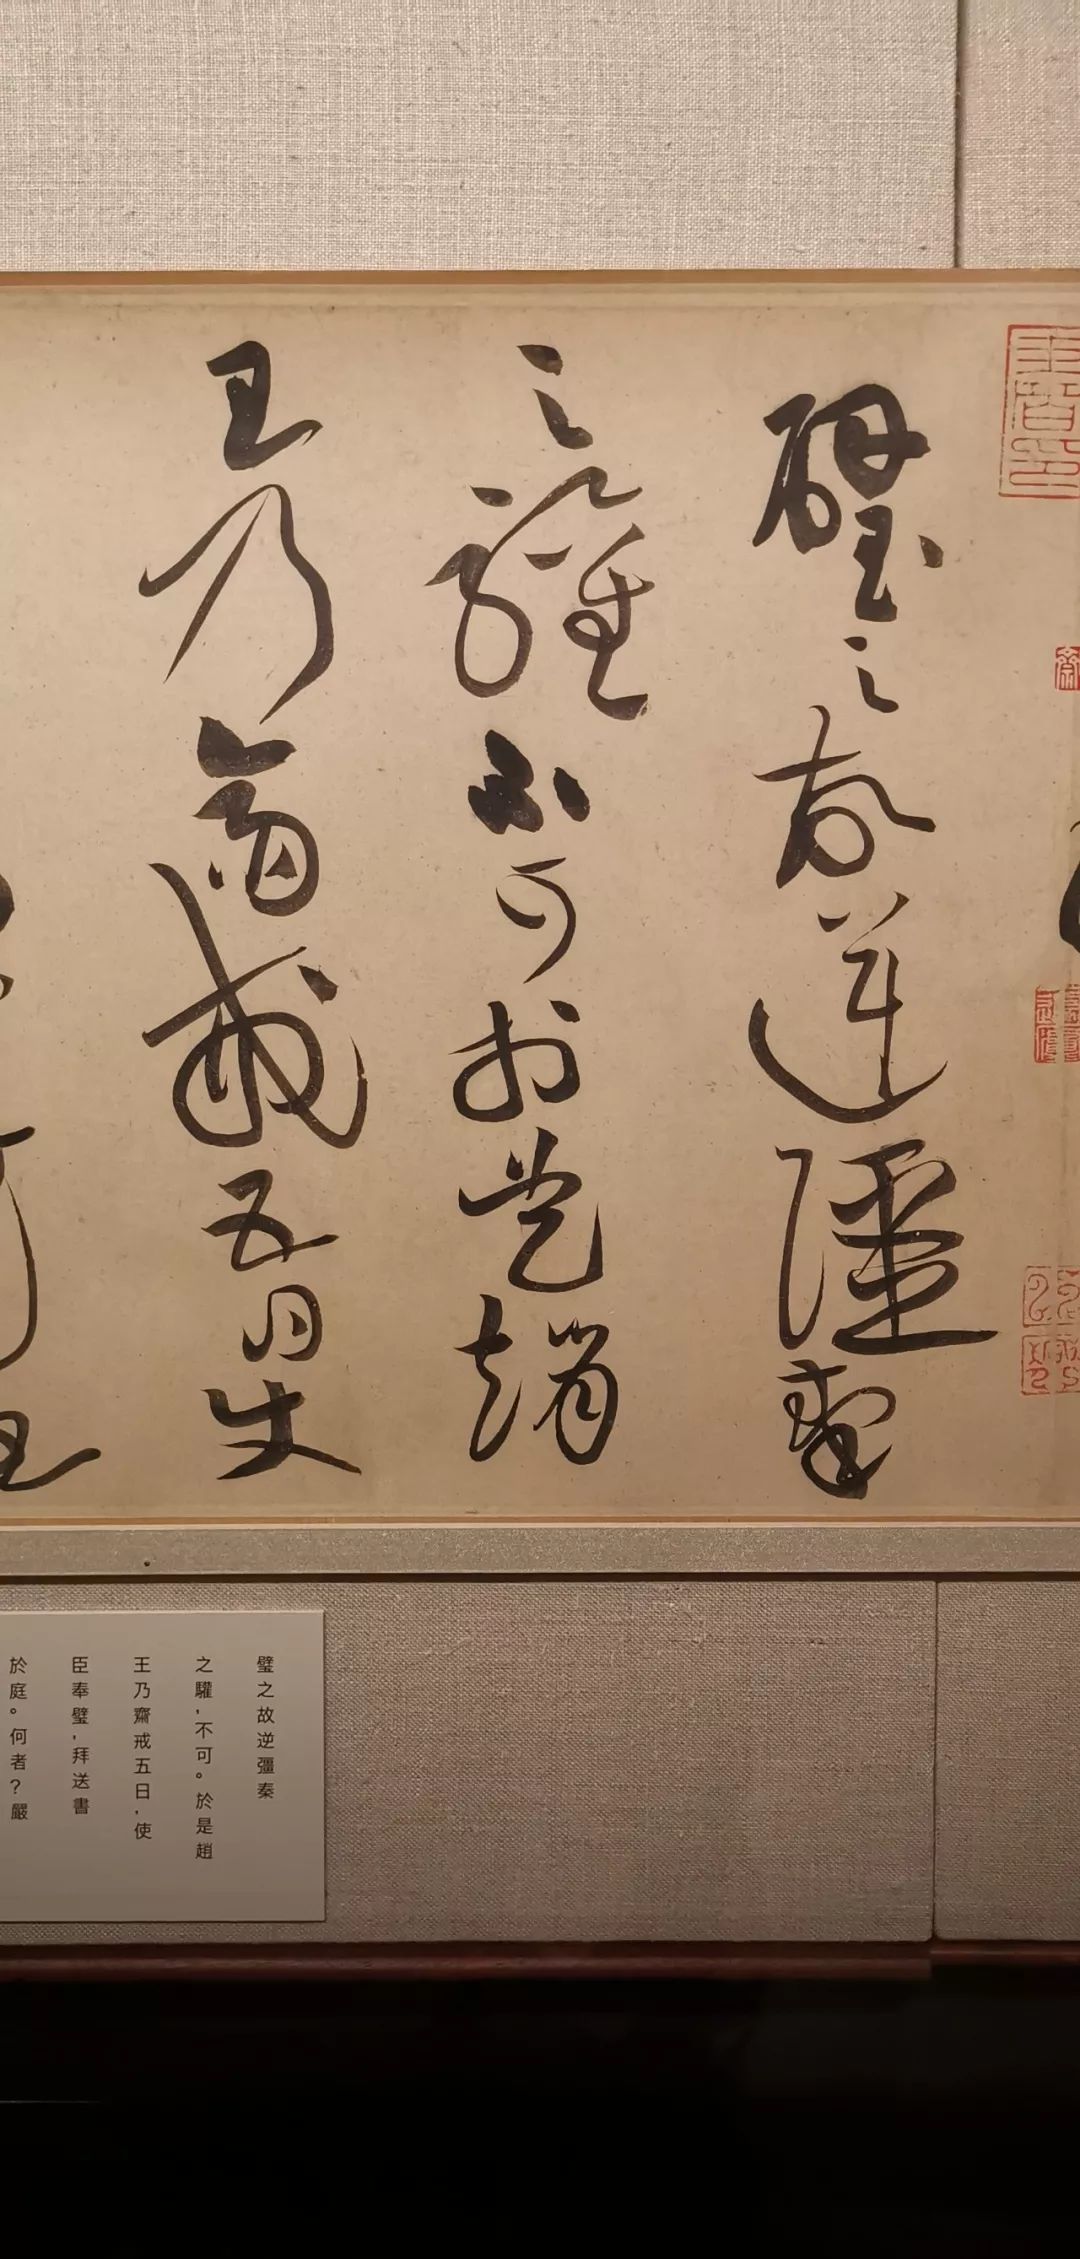 璧之故逆彊秦
之驩不可於是趙
王乃齋戒五日使
璧之故逆彊秦
之驩,不可。於是趙
王乃齋戒五日,使
臣奉璧,拜送書
於庭。何者?嚴